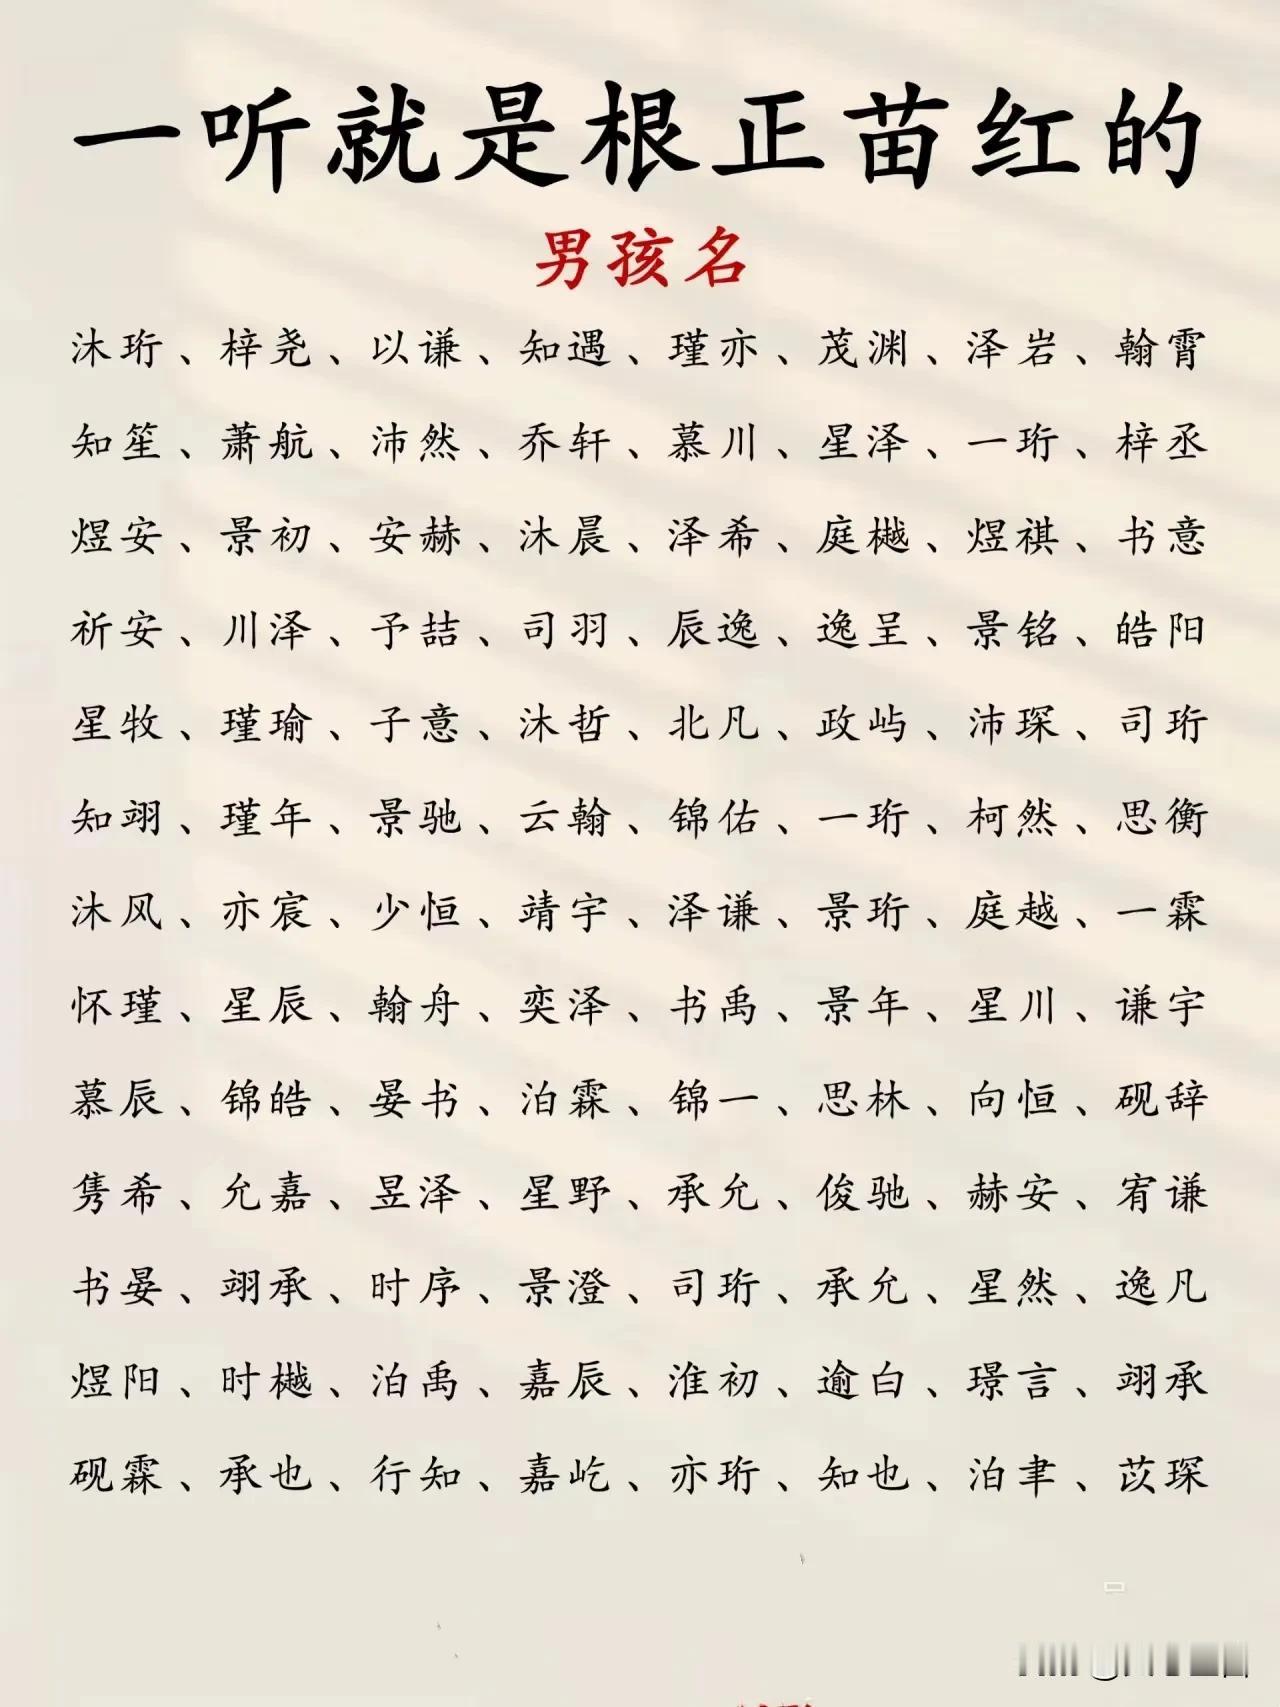 一听就是根正苗红的
男孩名
沐珩、梓尧、以谦、知遇、瑾亦、茂渊、泽岩、翰霄
知笙、萧航、沛然、乔轩、慕川、星泽、一珩、梓丞
煜安、景初、安赫、沐晨、泽希、庭樾、煜祺、书意
祈安、川泽、予喆、司羽、辰逸、逸呈、景铭、皓阳
星牧、瑾瑜、子意、沐哲、北凡、政屿、沛琛、司珩
知翊、瑾年、景驰、云翰、锦佑、一珩、柯然、思衡
沐风、亦宸、少恒、靖宇、泽谦、景珩、庭越、一霖
怀瑾、星辰、翰舟、奕泽、书禹、景年、星川、谦宇
慕辰、锦皓、晏书、泊霖、锦一、思林、向恒、砚辞
隽希、允嘉、昱泽、星野、承允、俊驰、赫安、宥谦
书晏、翊承、时序、景澄、司珩、承允、星然、逸凡
煜阳、时樾、泊禹、嘉辰、淮初、逾白、璟言、翊承
砚霖、承也、行知、嘉屹、亦珩、知也、泊聿、苡琛